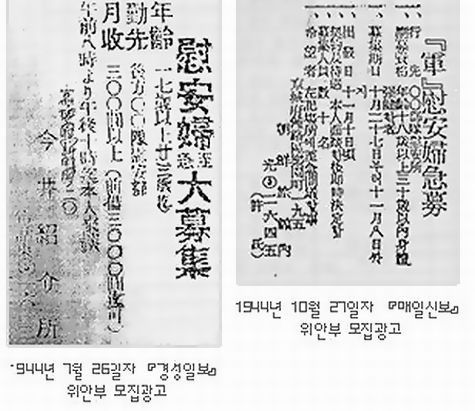 慰安婦至急大募集
年齡 一七歲以上廿三歲迄
勤先 後方〇〇隊慰安部
月收 三〇〇圓以上(前借三〇〇〇圓迄可)
午前八時より午後十時迄本人來談
今井紹介所
1944년 7월 26일자 『경성일보』
위안부 모집광고
『軍』慰安婦急募
一、行先 〇〇部隊慰安所
一、應募資格 年齡十八歲以上三十歲以内身體
一、募集期日 十月二十七日 十一月八日
一、出發日 十一月十日頃
一、契約及待遇 本人面談後即時決定
一、募集人員 數 名
一、希望者 左記場所
一九五
朝鮮旅館内
光③二六四五
(許氏)
1944년 10월 27일자 『매일신보』
위안부 모집광고